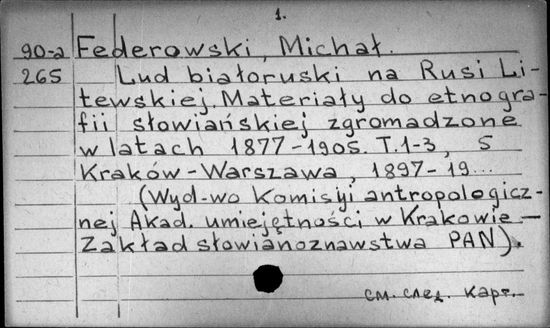 1.
90-2 Federowski, Michał.
265 Lud białoruski na Rusi Li-
tewskiej. Materiały do etnogra-
fii słowiańskiej zgromadzone
w latach 1877-1905. T.1-3, 5
Kraków-Warszawa, 1897-19...
(Wyd-wo Komisyi antropologicz-
nej Akad. umiejętności w Krakowie —
Zakład słowianoznawstwa PAN).
см. след. карт.